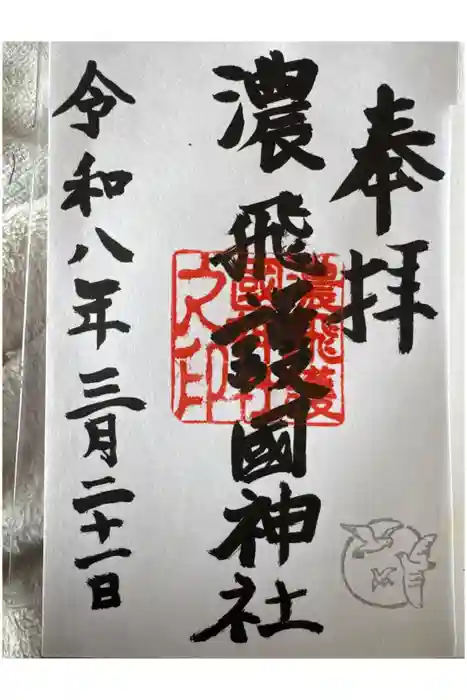 奉拝
濃飛護國神社
濃飛護
國神社
之印
令和八年三月二十一日